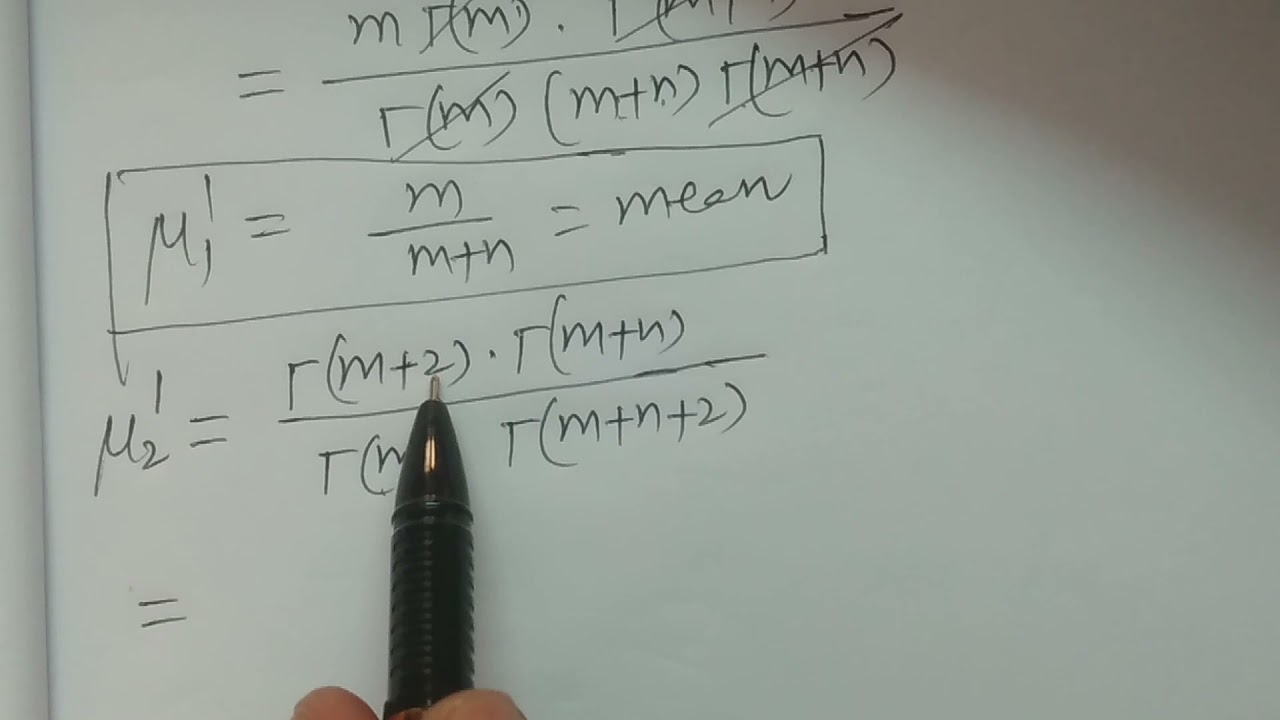 m Γ(m) ·
= Γ(m) (m+n) Γ(m+n)
μ₁' = m / m+n = mean
μ₂' = Γ(m+2) · Γ(m+n) / Γ( Γ(m+n+2)
=